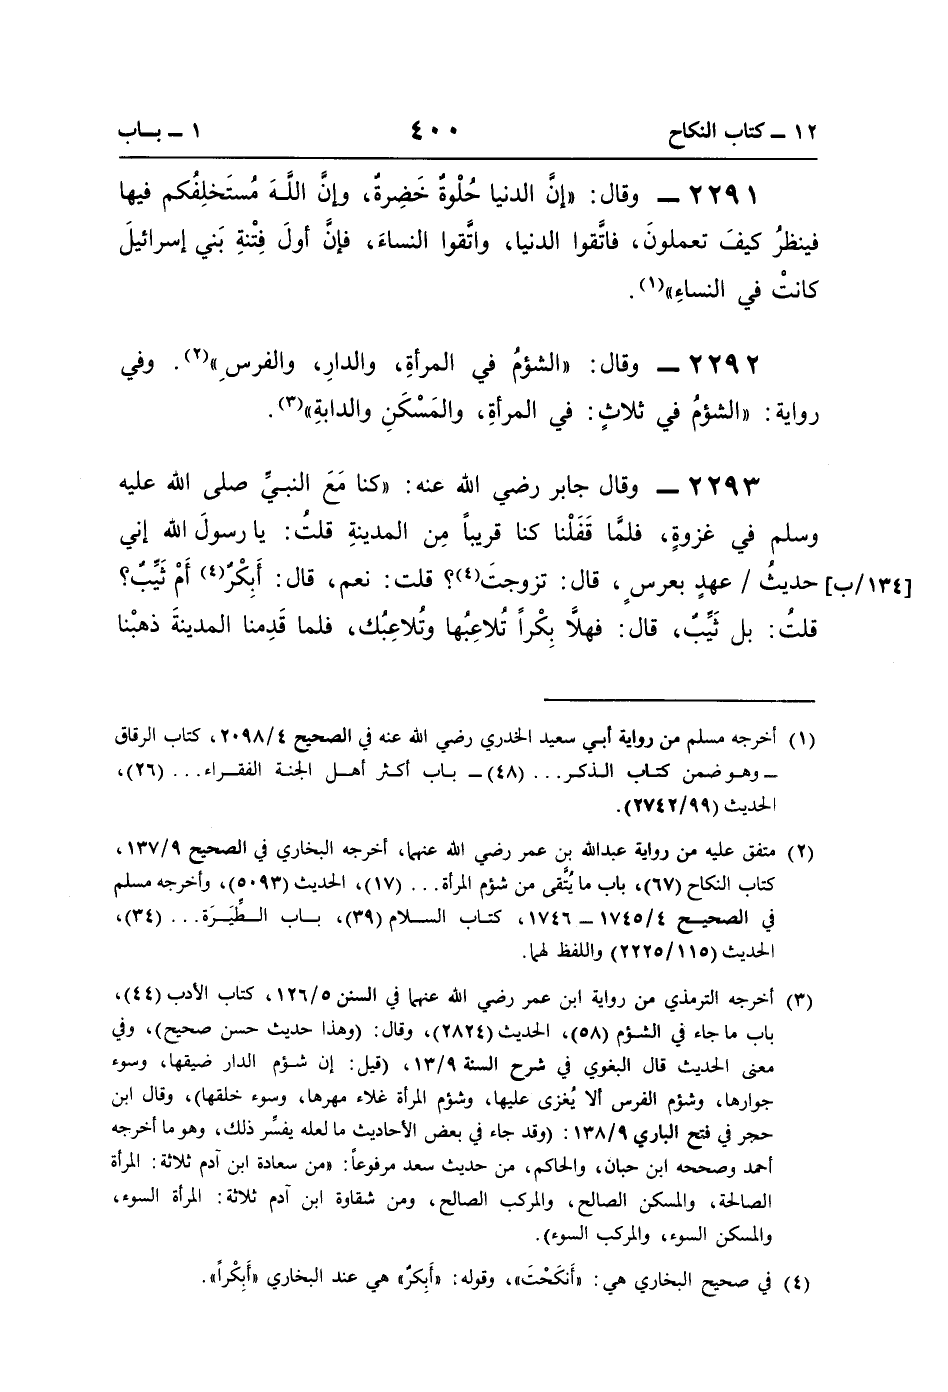 ١٢ ـ كتاب النكاح ٤٠٠ ١ ـ بـاب
٢٢٩١ ـ وقال: «إنَّ الدنيا حُلْوةٌ خَضِرةٌ، وإنَّ اللَّهَ مُستَخلِفُكم فيها
فينظرُ كيفَ تعملونَ، فاتَّقوا الدنيا، واتَّقوا النساءَ، فإنَّ أولَ فِتْنةِ بَني إسرائيلَ
كانتْ في النساءِ»(١).
٢٢٩٢ ـ وقال: «الشؤمُ في المرأةِ، والدارِ، والفرسِ»(٢). وفي
رواية: «الشؤمُ في ثلاثٍ: في المرأةِ، والمَسْكَنِ والدابةِ»(٣).
٢٢٩٣ ـ وقال جابر رضي الله عنه: «كنا مَعَ النبيِّ صلى الله عليه
وسلم في غزوةٍ، فلمَّا قَفَلْنا كنا قريباً مِن المدينةِ قلتُ: يا رسولَ الله إني
[١٣٤/ب] حديثُ / عهدٍ بعرسٍ، قال: تزوجتَ(٤)؟ قلت: نعم، قال: أَبِكْرٌ(٤) أَمْ ثَيِّبٌ؟
قلتُ: بل ثَيِّبٌ، قال: فهلاَّ بِكْراً تُلاعِبُها وتُلاعِبُك، فلما قَدِمنا المدينةَ ذهبْنا
(١) أخرجه مسلم من رواية أبي سعيد الخدري رضي الله عنه في الصحيح ٢٠٩٨/٤، كتاب الرقاق
ـ وهو ضمن كتاب الذكر... (٤٨) ـ باب أكثر أهل الجنة الفقراء... (٢٦)،
الحديث (٢٧٤٢/٩٩).
(٢) متفق عليه من رواية عبدالله بن عمر رضي الله عنهما، أخرجه البخاري في الصحيح ١٣٧/٩،
كتاب النكاح (٦٧)، باب ما يُتَّقى من شؤم المرأة... (١٧)، الحديث (٥٠٩٣)، وأخرجه مسلم
في الصحيح ١٧٤٥/٤ ـ ١٧٤٦، كتاب السلام (٣٩)، باب الطِّيَرَة... (٣٤)،
الحديث (٢٢٢٥/١١٥) واللفظ لهما.
(٣) أخرجه الترمذي من رواية ابن عمر رضي الله عنهما في السنن ١٢٦/٥، كتاب الأدب (٤٤)،
باب ما جاء في الشؤم (٥٨)، الحديث (٢٨٢٤)، وقال: (وهذا حديث حسن صحيح)، وفي
معنى الحديث قال البغوي في شرح السنة ١٣/٩، (قيل: إن شؤم الدار ضيقها، وسوء
جوارها، وشؤم الفرس ألا يُغزى عليها، وشؤم المرأة غلاء مهرها، وسوء خلقها)، وقال ابن
حجر في فتح الباري ١٣٨/٩: (وقد جاء في بعض الأحاديث ما لعله يفسِّر ذلك، وهو ما أخرجه
أحمد وصححه ابن حبان، والحاكم، من حديث سعد مرفوعاً: «من سعادة ابن آدم ثلاثة: المرأة
الصالحة، والمسكن الصالح، والمركب الصالح، ومن شقاوة ابن آدم ثلاثة: المرأة السوء،
والمسكن السوء، والمركب السوء).
(٤) في صحيح البخاري هي: «أَنكَحْتَ»، وقوله: «أَبِكرٌ» هي عند البخاري «أَبِكْراً».